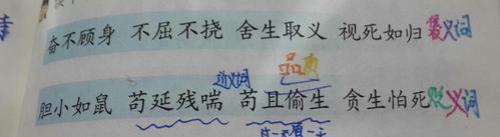 奋不顾身 不屈不挠 舍生取义 视死如归 义词
近义词 品质
胆小如鼠 苟延残喘 苟且偷生 贪生怕死 义词